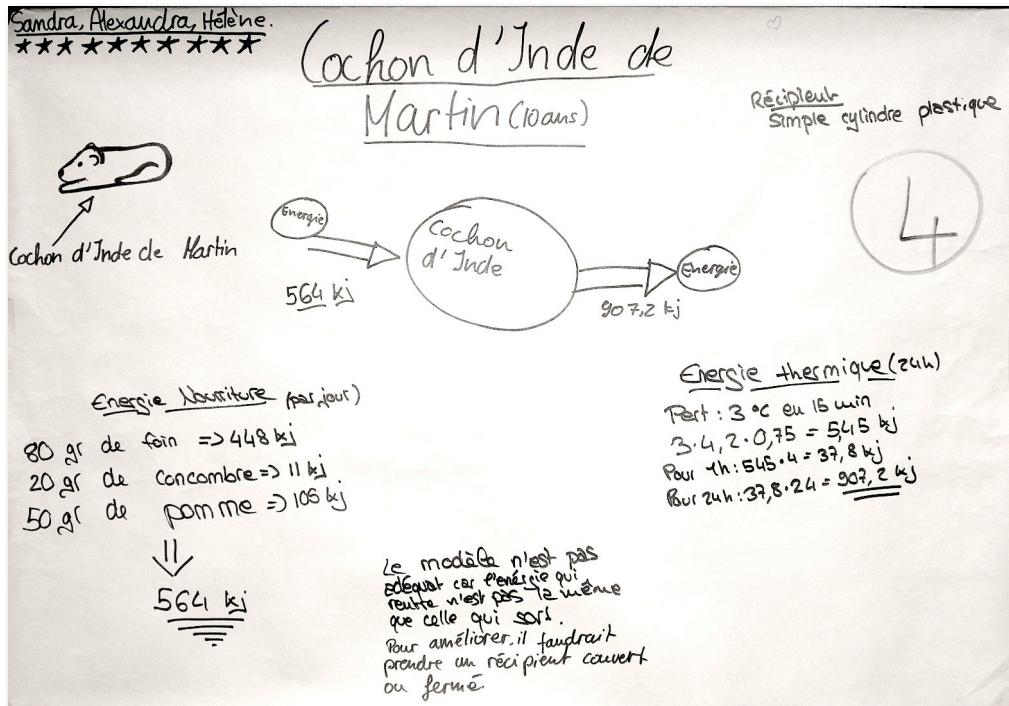 Sandra, Alexandra, Hélène.
Cochon d'Inde de
Martin (10 ans)
Récipient
Simple cylindre plastique
4
Cochon d'Inde de Martin
Energie
Cochon
d'Inde
Energie
564 kj
907,2 kj
Energie Nourriture (par jour)
80 gr de foin => 448 kj
20 gr de concombre => 11 kj
50 gr de pomme => 105 kj
564 kj
Energie thermique (24h)
Pert : 3 °C en 15 min
3·4,2·0,75 = 5,45 kj
Pour 1h : 545·4 = 37,8 kj
Pour 24h : 37,8·24 = 907,2 kj
Le modèle n'est pas
adéquat car l'enérgie qui
rentre n'est pas la même
que celle qui sort.
Pour améliorer, il faudrait
prendre un récipient couvert
ou fermé.